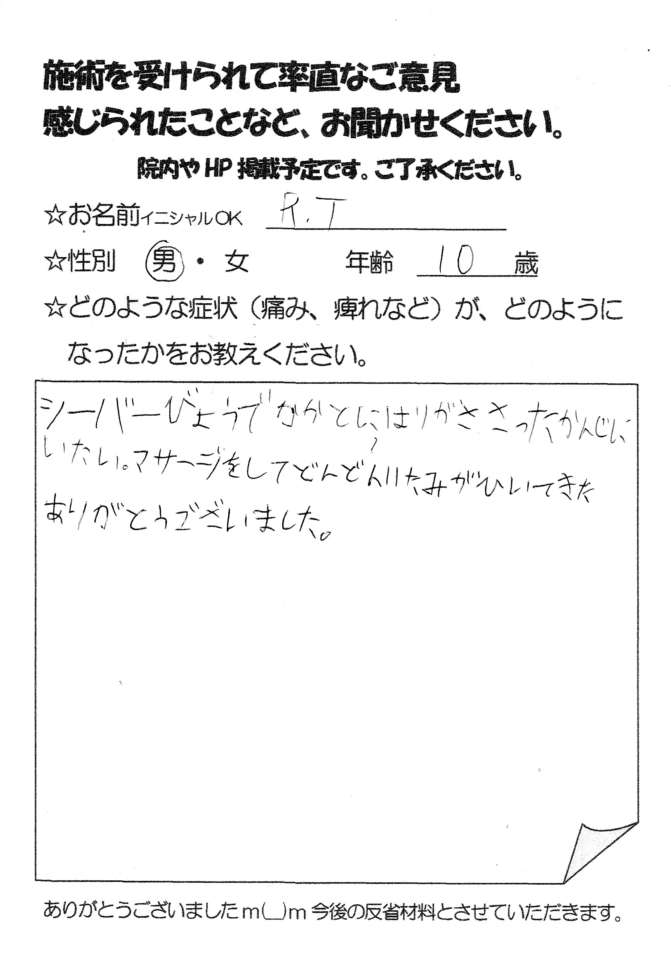 施術を受けられて率直なご意見
感じられたことなど、お聞かせください。
院内やHP掲載予定です。ご了承ください。
☆お名前イニシャルOK R.T
☆性別 男・女 年齢 10 歳
☆どのような症状（痛み、痺れなど）が、どのように
なったかをお教えください。
シーバーびょうでかかとにはりがささったかんじに
いたい。マサージをしてどんどんいたみがひいてきた
ありがとうございました。
ありがとうございましたm(__)m今後の反省材料とさせていただきます。